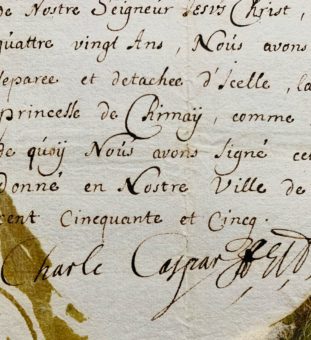 de Nostre Seigneur Jesus Christ,
quattre vingt Ans, Nous avons
separée et detachée d'Icelle, la
princesse de Chimaÿ, comme
de quoÿ Nous avons signé ce
donné en Nostre Ville de
cent Cincquante et Cincq.
Charle Caspar